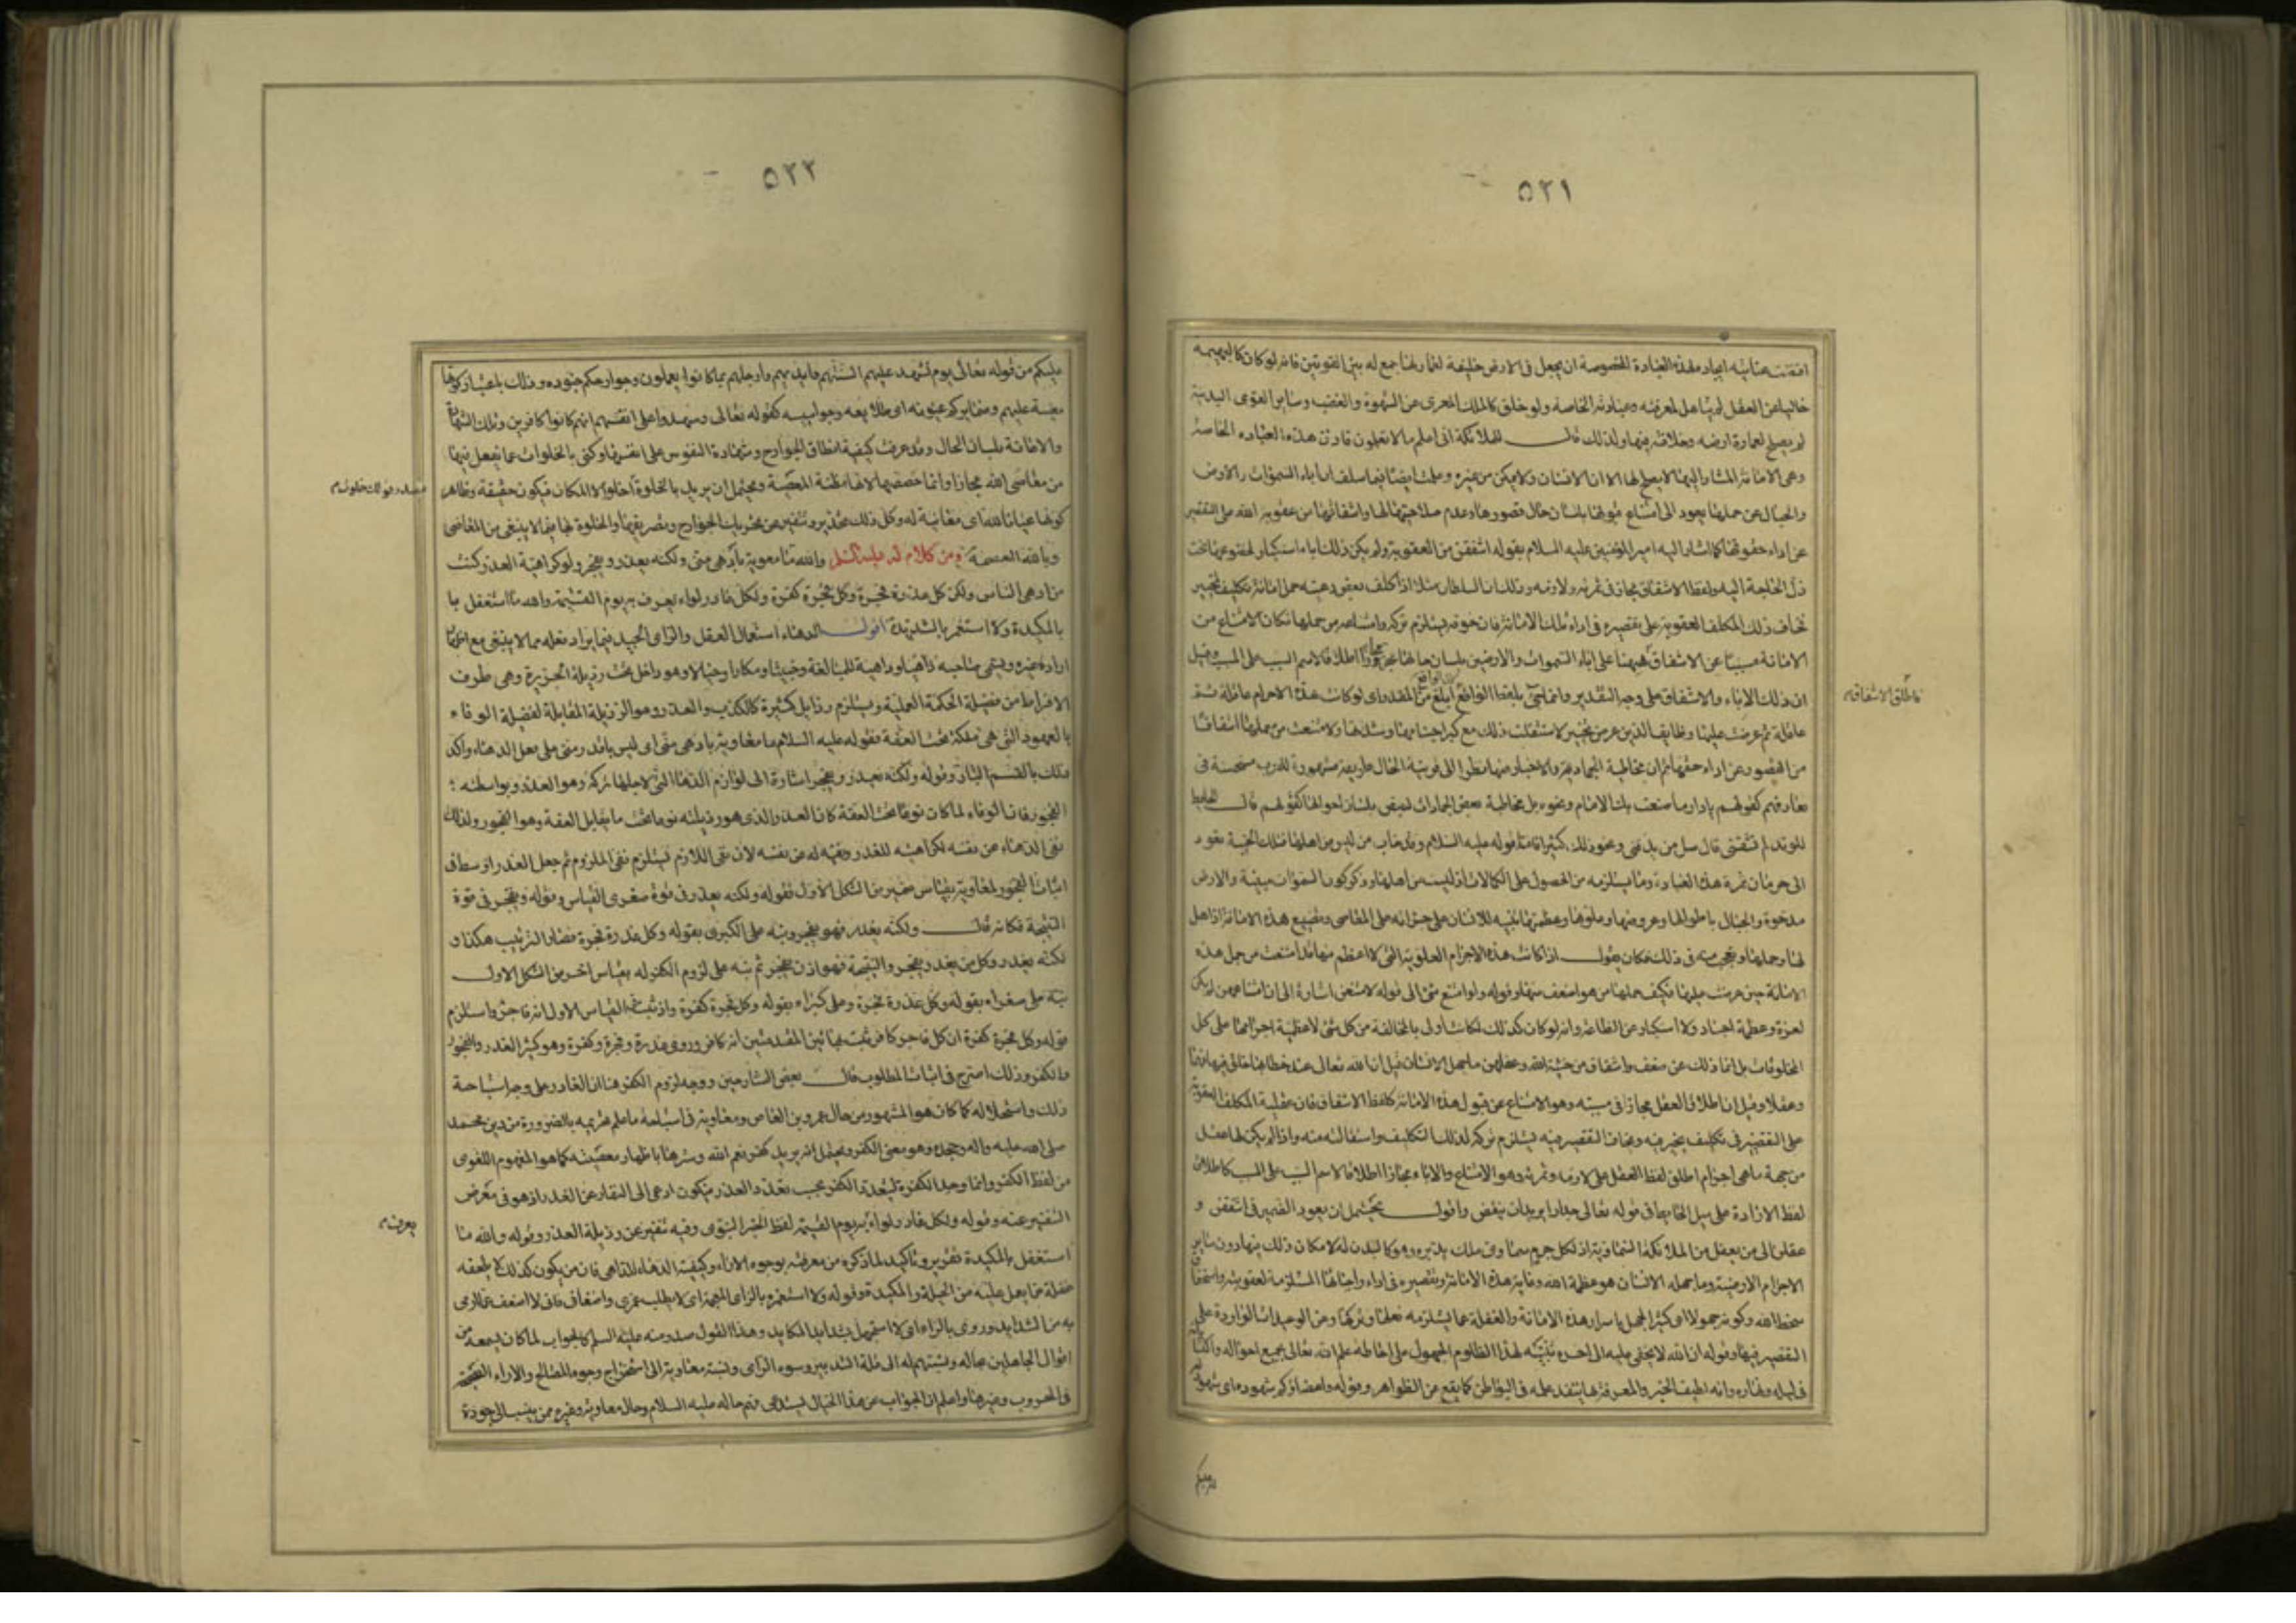 ٥٢١
اقتضت عنايته ايجاد هذه العبادة المخصوصة ان يجعل فى الارض خليفة لعمارتها جمع له بين القوتين فانه لو كان كالبهيمة
خاليا عن العقل لم يتاهل لمعرفته وعبادته الخاصة ولو خلق كالملك المعرى عن الشهوة والغضب وساير القوى البدنية
لم يصلح لعمارة ارضه وخلافته فيها ولذلك قال للملائكة انى اعلم ما لا تعلمون فاذن هذه العباده الخاصة
وهى الامانة المشار اليها لا يصلح لها الا الانسان ولا يمكن من غيره وعلمت ايضا فيما سلف ان اباء السموات والارض
والجبال عن حملها يعود الى امتناع قبولها بلسان حال قصورها وعدم صلاحيتها لها واشفاقها من عقوبة الله على التقصير
عن اداء حقوقها كما اشار اليه امير المؤمنين عليه السلام بقوله اشفقن من العقوبة ولم يكن ذلك اباء استكبار لخضوعها تحت
ذل الحاجة اليه ولفظ الاشفاق مجاز فى ثمرته ولازمه وذلك ان السلطان مثلا اذا كلف بعض رعيته حمل امانة تكليف تخيير
فخاف ذلك المكلف العقوبة على تقصيره فى اداء تلك الامانة فان خوفه يستلزم تركه وامتناعه من حملها فكان الامتناع من
الامانة مسببا عن الاشفاق فيهما على اباء السموات والارضين بلسان حالها مجازا اطلاقا لاسم السبب على المسبب وقيل
ان ذلك الاباء والاشفاق على وجه التقدير وانما جئ بلفظ الواقع لان الواقع ابلغ من المقدر اى لو كانت هذه الاجرام عاقلة ثم
فاطلق الاشفاق
عاقلة ثم عرضت عليها وظايف الدين عرض تخيير لاستثقلت ذلك مع كبر اجسامها وشدتها ولامتنعت من حملها اشفاقا
من القصور عن اداء حقها ثم ان مخاطبة الجماد والاخبار عنها نظرا الى قرينة الحال طريقة مشهورة للعرب مستحسنة فى
تعارفهم كقولهم يا دار ما صنعت بك الايام ونحوه بل مخاطبة بعض الجمادات لبعض بلسان احوالها كقولهم قال الحايط
للوتد لم تشقنى قال سل من يدقنى ونحو ذلك كثير فاما قوله عليه السلام وقد خاب من ليس من اهلها فتلك الخيبة تعود
الى حرمان ثمرة هذه العبادة وما يستلزمه من الحصول على الكمالات اذ ليست من اهلها وذكر كون السموات مبنية والارض
مدحوة والجبال باطوالها وعروضها وعلوها وعظمها تنبيه للانسان على جراته على المعاصى وتضييع هذه الامانة اذ اهل
لها وحملها وتعجب منه فى ذلك فكان يقول اذا كانت هذه الاجرام العلوية التى لا اعظم منها قد امتنعت من حمل هذه
الامانة حين عرضت عليها فكيف حملها من هو اضعف منها وقوله ولو امتنع شئ الى قوله لامتنعن اشارة الى ان امتناعهن لم يكن
لعزة وعظمة اجساد ولا استكبار عن الطاعة وانه لو كان كذلك لكانت اولى بالمخالفة من كل شئ لاعظمية اجرامها على كل
المخلوقات بل انما ذلك عن ضعف واشفاق من خشية الله وعقلهن ما جهل الانسان قيل ان الله تعالى عند خطابها خلق فيها فهما
وعقلا وقيل ان اطلاق العقل مجاز فى مسببه وهو الامتناع عن قبول هذه الامانة كلفظ الاشفاق فان عقلية المكلف العقوبة
على التقصير فى تكليف يخير فيه ويخاف التقصير فيه يستلزم تركه لذلك التكليف واستقالته منه واذا لم يكن لها عقل
من جهة ما هى اجرام اطلق لفظ العقل على لازمه وثمرته وهو الامتناع والاباء مجازا اطلاقا لاسم السبب على المسبب كاطلاق
لفظ الارادة على ميل الحايط فى قوله تعالى جدارا يريد ان ينقض واقول يحتمل ان يعود الضمير فى اشفقن و
عقلن الى من يعقل من الملائكة السماوية اذ لكل جرم سماوى ملك يدبره وهو كالبدن له لا مكان ذلك فيها دون ساير
الاجرام الارضية وما جهله الانسان هو عظمة الله وغاية هذه الامانة وتقصيره فى اداء واجباتها المستلزمة لعقوبته واستحقاق
سخط الله وكونه جهولا اى كثير الجهل باسرار هذه الامانة والغفلة عما يستلزمه فعلها وتركها وعن الوعيدات الواردة على
التقصير فيها وقوله ان الله لا يخفى عليه الى اخره تنبيه لهذا الظلوم الجهول على احاطة علم الله تعالى بجميع احواله واكتسابه
فى ليله ونهاره وانه لطيف الخبر والمعرفة بها ينفذ علمه فى البواطن كما يقع عن الظواهر وقوله واعضاؤكم شهوده اى شهود
عليكم
٥٢٢
عليكم من قوله تعالى يوم تشهد عليهم السنتهم وايديهم وارجلهم بما كانوا يعملون وجوارحكم جنوده وذلك باعتبار كونها
معينة عليهم وضمايركم عيونه اى طلايعه وجواسيسه كقوله تعالى وشهدوا على انفسهم انهم كانوا كافرين وتلك الشهادة
والاعانة بلسان الحال وقد عرفت كيفية انطاق الجوارح وشهادة النفوس على انفسها وكنى بالخلوات عما يفعل فيها
من معاصى الله مجازا وانما خصصها لانها مظنة المعصية ويحتمل ان يريد بالخلوة احلولا المكان فيكون حقيقة وظاهر
مصدر قولك خلوت
كونها عيانا لله اى معاينة له وكل ذلك تحذير وتنفير عن تحريك الجوارح وتصريفها والخلوة بها فيما لا ينبغى من المعاصى
وبالله العصمة ومن كلام له عليه السلم والله ما معوية بادهى منى ولكنه يغدر ويفجر ولولا كراهية الغدر كنت
من ادهى الناس ولكن كل غدرة فجرة وكل فجرة كفرة ولكل غادر لواء يعرف به يوم القيمة والله ما استغفل با
بالمكيدة ولا استغمز بالشديدة اقول الدهاء استعمال العقل والراى الجيد فيما يراد فعله مما لا ينبغى مع اظهار
ارادة غيره ويسمى صاحبه داهيا وداهية للمبالغة وخبيثا ومكارا وحيالا وهو داخل تحت رذيلة الجربزة وهى طرف
الافراط من فضيلة الحكمة العملية ويستلزم رذايل كثيرة كالكذب والغدر وهو الرذيلة المقابلة لفضيلة الوفاء
بالعهود التى هى ملكة تحت العفة فقوله عليه السلام ما معاوية بادهى منى اى ليس باقدر منى على فعل الدهاء واكد
ذلك بالقسم البار وقوله ولكنه يغدر ويفجر اشارة الى لوازم الدهاء التى لاجلها تركه وهو الغدر وبواسطته
الفجور فان الوفاء لما كان نوعا تحت العفة كان الغدر الذى هو رذيلته نوعا تحت ما يقابل العفة وهو الفجور ولذلك
نفى الدهاء عن نفسه لكراهيته للغدر ونفيه له عن نفسه لان نفى اللازم يستلزم نفى الملزوم ثم جعل الغدر اوسط فى
اثبات الفجور لمعاوية بقياس ضمير من الشكل الاول فقوله ولكنه يغدر فى قوة صغرى القياس وقوله ويفجر فى قوة
النتيجة فكانه قال ولكنه يغدر فهو يفجر ونبه على الكبرى بقوله وكل غدرة فجرة فصار الترتيب هكذا و
لكنه يغدر وكل من يغدر يفجر والنتيجة فهو اذن يفجر ثم نبه على لزوم الكفر له بقياس اخر من الشكل الاول
نبه على صغراه بقوله وكل غدرة فجرة وعلى كبراه بقوله وكل فجرة كفرة واذ ثبت فى القياس الاول انه فاجر واستلزم
قوله وكل فجرة كفرة ان كل فاجر كافر ثبت بهاتين المقدمتين انه كافر وروى غدرة وفجرة وكفرة وهو كثير الغدر والفجور
والكفر وذلك اصرح فى اثبات المطلوب قال بعض الشارحين ووجه لزوم الكفر هنا ان الغادر على وجه استباحة
ذلك واستحلاله كما كان هو المشهور من حال عمرو بن العاص ومعاوية فى استباحة ما علم تحريمه بالضرورة من دين محمد
صلى الله عليه واله وجحده وهو معنى الكفر ويحتمل انه يريد كفر نعم الله وسترها باظهار معصيته كما هو المفهوم اللغوى
من لفظ الكفر وانما وحد الكفرة لتعدد الكفر بحسب تعدد الغدر فيكون ادعى الى النفار عن الغدر اذ هو فى معرض
التنفير عنه وقوله ولكل غادر لواء به يوم القيمة لفظ الخبر النبوى وفيه تنفير عن رذيلة الغدر وقوله والله ما
يعرف
استغفل بالمكيدة تقرير وتاكيد لما ذكره من معرفته بوجوه الاراء وكيفية الدهاء للداهى فان من يكون كذلك لا يلحقه
غفلة عما يعمل عليه من الحيلة والمكيدة وقوله ولا استغمز بالراى المعجمة اى لا يطلب غمزى واضعافى فانى لا اضعف عما ارمى
به من الشدايد وروى بالراء اى لا استجهل بشدايد المكايد وهذا القول صدر منه عليه السلم كالجواب لما كان يسمعه من
اقوال الجاهلين بحاله ونسبتهم له الى قلة التدبير وسوء الراى ونسبة معاوية الى استخراج وجوه المصالح والاراء الصحيحة
فى الحروب وغيرها واعلم ان الجواب عن هذا الخيال يستدعى فهم حاله عليه السلام وحال معاوية وغيره ممن ينسب الى جودة